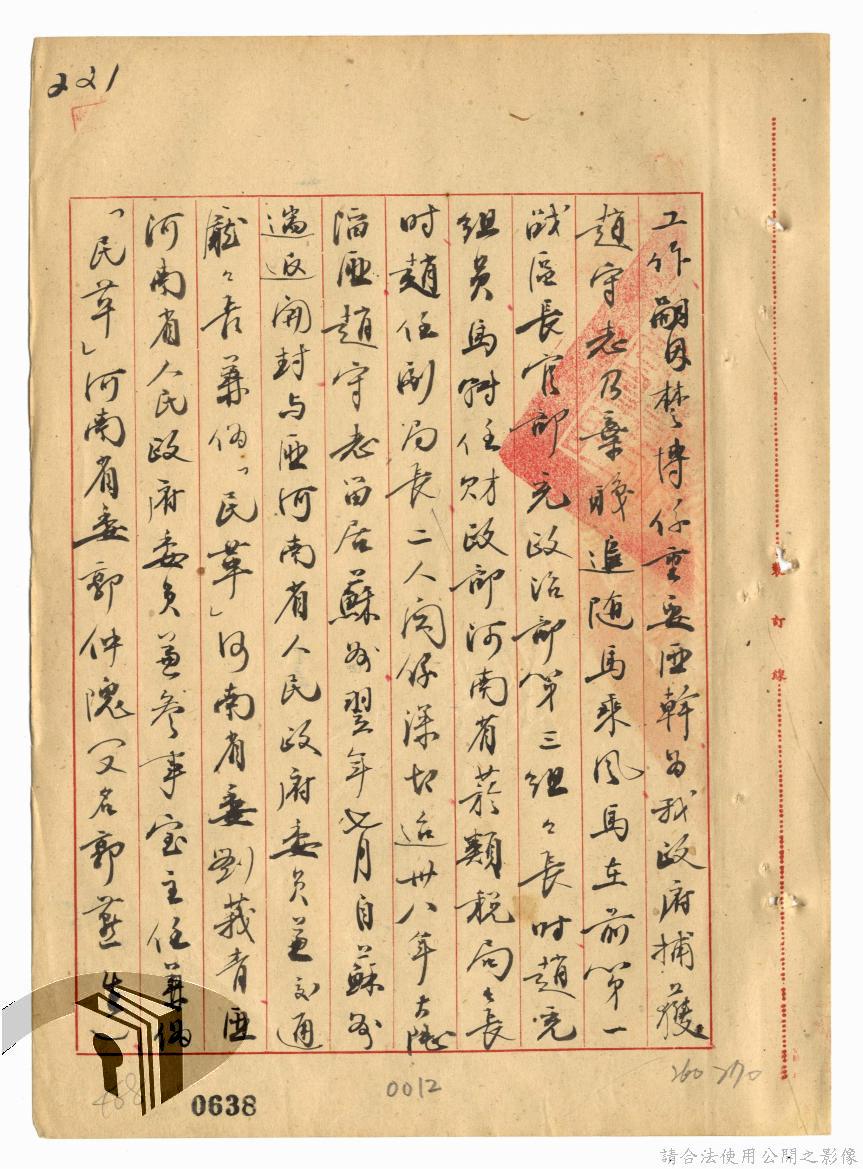 221
工作嗣因楚博係重要匪幹為我政府捕獲
趙守志乃棄職追随馬乘風馬在前第一
战區長官部充政治部第三組々長时趙充
組員馬轉任财政部河南省菸類税局々長
时趙任副局長二人関係深切迨卅八年大陸
淪匪趙守志留居蘇州翌年七月自蘇州
遄返開封与匪河南省人民政府委員兼交通
廳々長兼偽「民革」河南省委劉莪青匪
河南省人民政府委員兼参事室主任兼偽
「民革」河南省委郭仲隗(又名郭燕生)
裝訂線
468
0638
0012
260 270
請合法使用公開之影像